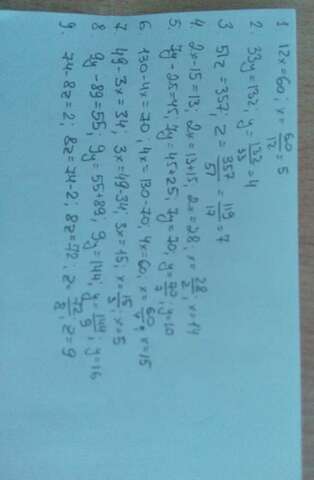 1. 12x=60; x=60/12=5
2. 33y=132; y=132/33=4
3. 51z=357; z=357/51=119/17=7
4. 2x-15=13; 2x=13+15, 2x=28, x=28/2; x=14
5. 7y-25=45; 7y=45+25, 7y=70; y=70/7; y=10
6. 130-4x=70; 4x=130-70; 4x=60; x=60/4; x=15
7. 49-3x=34; 3x=49-34; 3x=15; x=15/3; x=5
8. 9y-89=55; 9y=55+89; 9y=144; y=144/9; y=16
9. 74-8z=2; 8z=74-2; 8z=72; z=72/8; z=9